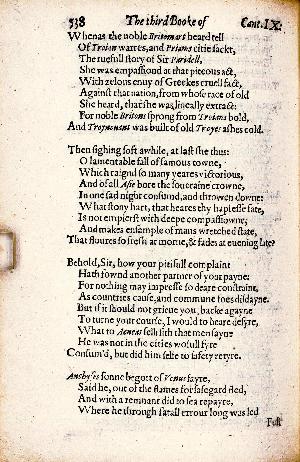 538 The third Booke of Cant. IX.
VVhenas the noble Britomart heard tell
Of Troian warres, and Priams citie sackt,
The ruefull story of Sir Paridell,
She was empassiond at that piteous act,
With zelous enuy of Greekes cruell fact,
Against that nation, from whose race of old
She heard, that she was lineally extract:
For noble Britons sprong from Troians bold,
And Troynouant was built of old Troyes ashes cold.
Then sighing soft awhile, at last she thus:
O lamentable fall of famous towne,
Which raignd so many yeares victorious,
And of all Asie bore the soueraine crowne,
In one sad night consumd, and throwen downe:
What stony hart, that heares thy haplesse fate,
Is not empierst with deepe compassiowne,
And makes ensample of mans wretched state,
That floures so fresh at morne, & fades at euening late?
Behold, Sir, how your pitifull complaint
Hath fownd another partner of your payne:
For nothing may impresse so deare constraint,
As countries cause, and commune foes disdayne.
But if it should not grieue you, backe agayne
To turne your course, I would to heare desyre,
What to Aeneas fell; sith that men sayne
He was not in the cities wofull fyre
Consum'd, but did him selfe to safety retyre.
Anchyses sonne begott of Venus fayre,
Said he, out of the flames for safegard fled,
And with a remnant did to sea repayre,
Where he through fatall errour long was led
Full